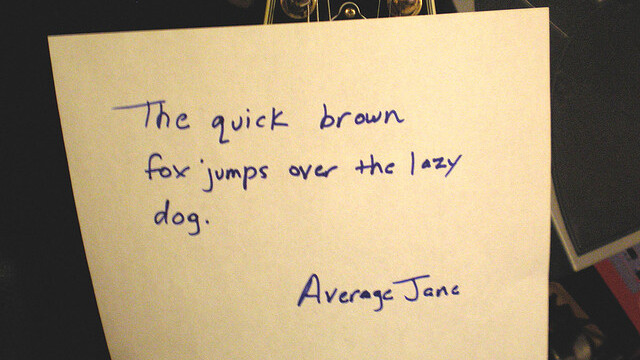 The quick brown
fox jumps over the lazy
dog.
Average Jane